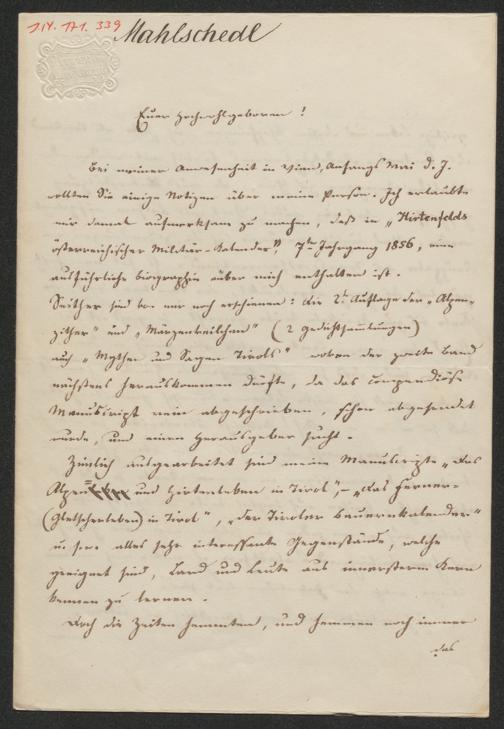 I.N. 171.339
Mahlschedl
Euer Hochwohlgeboren!
Bei meiner Anwesenheit in Wien, Anfangs Mai d. J.
wollten Sie einige Notizen über meine Person. Ich erlaubte
mir damals aufmerksam zu machen, daß in „Hirtenfelds
österreichischer Militär-Kalender", 7ter Jahrgang 1856, eine
ausführliche Biographie über mich enthalten ist.
Seither sind von mir noch erschienen: die 2te Auflage der „Alpen-
zither" und „Märzenveilchen" (2 Gedichtsammlungen)
auch „Mythen und Sagen Tirols" wovon der zweite Band
nächstens herauskommen dürfte, da das compendiöse
Manuscript rein abgeschrieben, schon abgesendet
wurde, und einen Herausgeber sucht.
Zimlich ausgearbeitet sind meine Manuscripte „Das
Alpen= und Hirtenleben in Tirol", – „Das Ferner-
(Gletscherleben) in Tirol", „Der Tiroler Bauernkalender"
u. s. w. alles sehr interessante Gegenstände, welche
geeignet sind, Land und Leute aus innerstem Kern
kennen zu lernen.
Doch die Zeiten hemmten, und hemmen noch immer
das